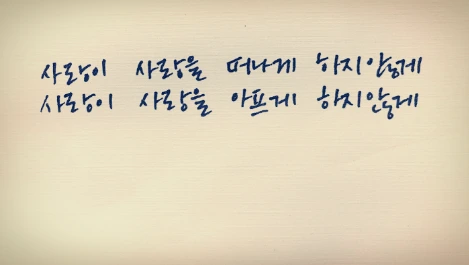 사랑이 사랑을 떠나게 하지않게
사랑이 사랑을 아프게 하지않게